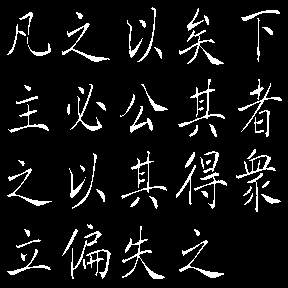 下者衆
矣其得之
以公其失
之必以偏
凡主之立